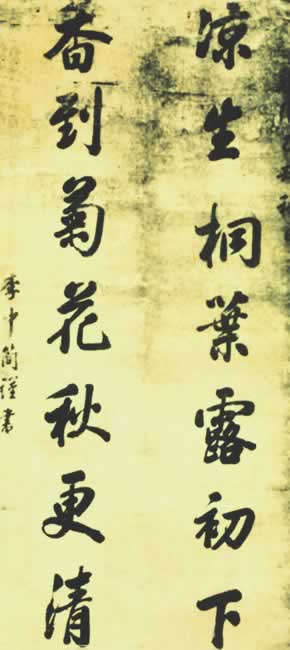 凉生桐葉露初下
香到菊花秋更清
李中簡謹書